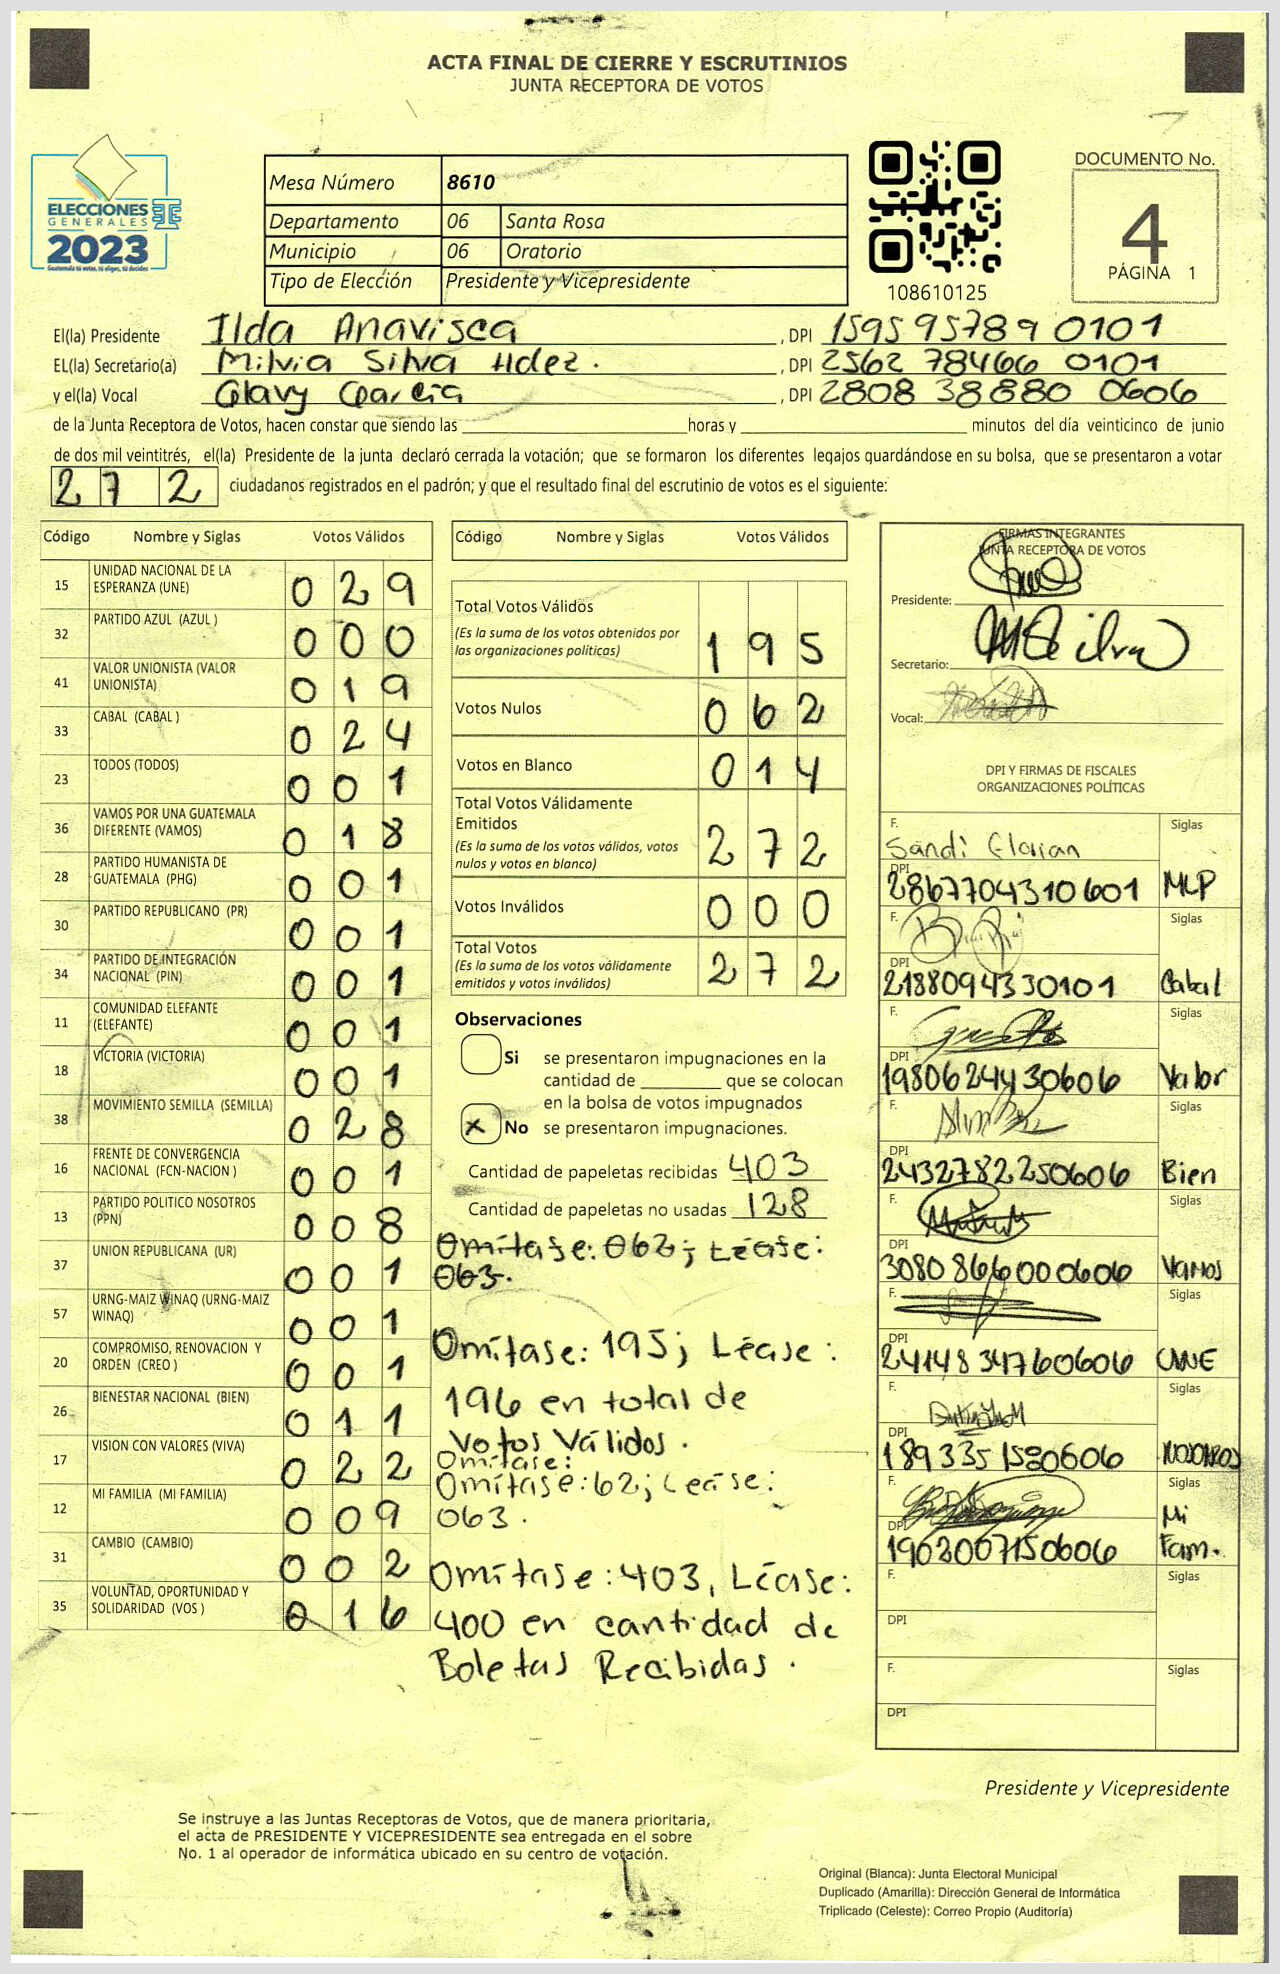 ACTA FINAL DE CIERRE Y ESCRUTINIOS
JUNTA RECEPTORA DE VOTOS
ELECCIONES
GENERALES
2023
Guatemala tú votas, tú eliges, tú decides
Mesa Número 8610
Departamento 06 Santa Rosa
Municipio 06 Oratorio
Tipo de Elección Presidente y Vicepresidente
108610125
DOCUMENTO No.
4
PÁGINA 1
El(la) Presidente Ilda Anavisca , DPI 1595 95789 0101
EL(la) Secretario(a) Milvia Silva Hdez. , DPI 2562 78466 0101
y el(la) Vocal Glavy García , DPI 2808 38880 0606
de la Junta Receptora de Votos, hacen constar que siendo las horas y minutos del día veinticinco de junio
de dos mil veintitrés, el(la) Presidente de la junta declaró cerrada la votación; que se formaron los diferentes legajos guardándose en su bolsa, que se presentaron a votar
272 ciudadanos registrados en el padrón; y que el resultado final del escrutinio de votos es el siguiente:
Código Nombre y Siglas Votos Válidos
15 UNIDAD NACIONAL DE LA ESPERANZA (UNE) 029
32 PARTIDO AZUL (AZUL ) 000
41 VALOR UNIONISTA (VALOR UNIONISTA) 019
33 CABAL (CABAL ) 024
23 TODOS (TODOS) 001
36 VAMOS POR UNA GUATEMALA DIFERENTE (VAMOS) 018
28 PARTIDO HUMANISTA DE GUATEMALA (PHG) 001
30 PARTIDO REPUBLICANO (PR) 001
34 PARTIDO DE INTEGRACIÓN NACIONAL (PIN) 001
11 COMUNIDAD ELEFANTE (ELEFANTE) 001
18 VICTORIA (VICTORIA) 001
38 MOVIMIENTO SEMILLA (SEMILLA) 028
16 FRENTE DE CONVERGENCIA NACIONAL (FCN-NACION ) 001
13 PARTIDO POLITICO NOSOTROS (PPN) 008
37 UNION REPUBLICANA (UR) 001
57 URNG-MAIZ WINAQ (URNG-MAIZ WINAQ) 001
20 COMPROMISO, RENOVACION Y ORDEN (CREO ) 001
26 BIENESTAR NACIONAL (BIEN) 011
17 VISION CON VALORES (VIVA) 022
12 MI FAMILIA (MI FAMILIA) 009
31 CAMBIO (CAMBIO) 002
35 VOLUNTAD, OPORTUNIDAD Y SOLIDARIDAD (VOS ) 016
Código Nombre y Siglas Votos Válidos
Total Votos Válidos
(Es la suma de los votos obtenidos por las organizaciones políticas) 195
Votos Nulos 062
Votos en Blanco 014
Total Votos Válidamente Emitidos
(Es la suma de los votos válidos, votos nulos y votos en blanco) 272
Votos Inválidos 000
Total Votos
(Es la suma de los votos válidamente emitidos y votos inválidos) 272
Observaciones
Si se presentaron impugnaciones en la
cantidad de que se colocan
en la bolsa de votos impugnados
x No se presentaron impugnaciones.
Cantidad de papeletas recibidas 403
Cantidad de papeletas no usadas 128
Omítase: 062; Léase:
063.
Omítase: 195; Léase:
196 en total de
Votos Válidos.
Omítase:
Omítase: 62; Léase:
063.
Omítase: 403, Léase:
400 en cantidad de
Boletas Recibidas.
FIRMAS INTEGRANTES
JUNTA RECEPTORA DE VOTOS
Presidente:
Secretario:
Vocal:
DPI Y FIRMAS DE FISCALES
ORGANIZACIONES POLÍTICAS
F. Sandi Florian Siglas
DPI 2867704310601 MLP
F. Siglas
DPI 2188094330101 Cabal
F. Siglas
DPI 1980624430606 Valor
F. Siglas
DPI 2432782250606 Bien
F. Siglas
DPI 3080866000606 Vamos
F. Siglas
DPI 2414834760606 UNE
F. Siglas
DPI 1893351580606 NOSOTROS
F. Siglas
DPI 1903007150606 Mi Fam.
F. Siglas
DPI
F. Siglas
DPI
Presidente y Vicepresidente
Se instruye a las Juntas Receptoras de Votos, que de manera prioritaria,
el acta de PRESIDENTE Y VICEPRESIDENTE sea entregada en el sobre
No. 1 al operador de informática ubicado en su centro de votación.
Original (Blanca): Junta Electoral Municipal
Duplicado (Amarilla): Dirección General de Informática
Triplicado (Celeste): Correo Propio (Auditoría)